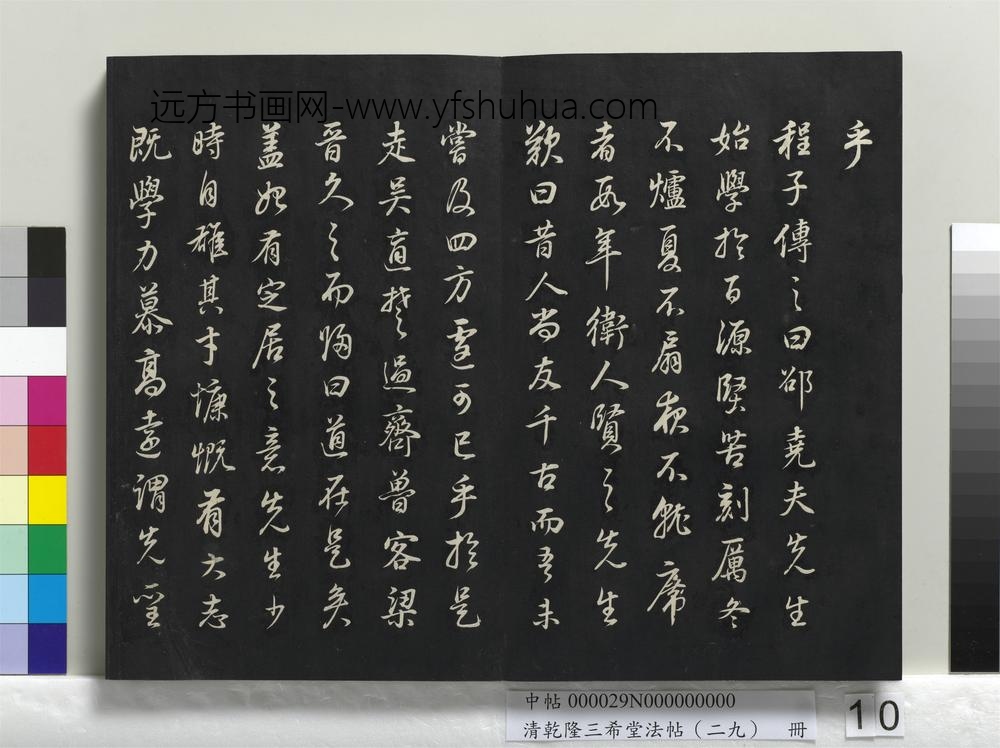 远方书画网-www.yfshuhua.com
乎
程子傳之曰邵堯夫先生
始學於百源堅苦刻厲冬
不爐夏不扇夜不就席
者數年衛人賢之先生
歎曰昔人尚友千古而吾未
嘗及四方遽可已乎於是
走吴適楚過齊魯客梁
晉久之而歸曰道在是矣
盖始有定居之意先生少
時自雄其才慷慨有大志
既學力慕高遠謂先聖
中帖 000029N000000000
清乾隆三希堂法帖（二九） 冊
10